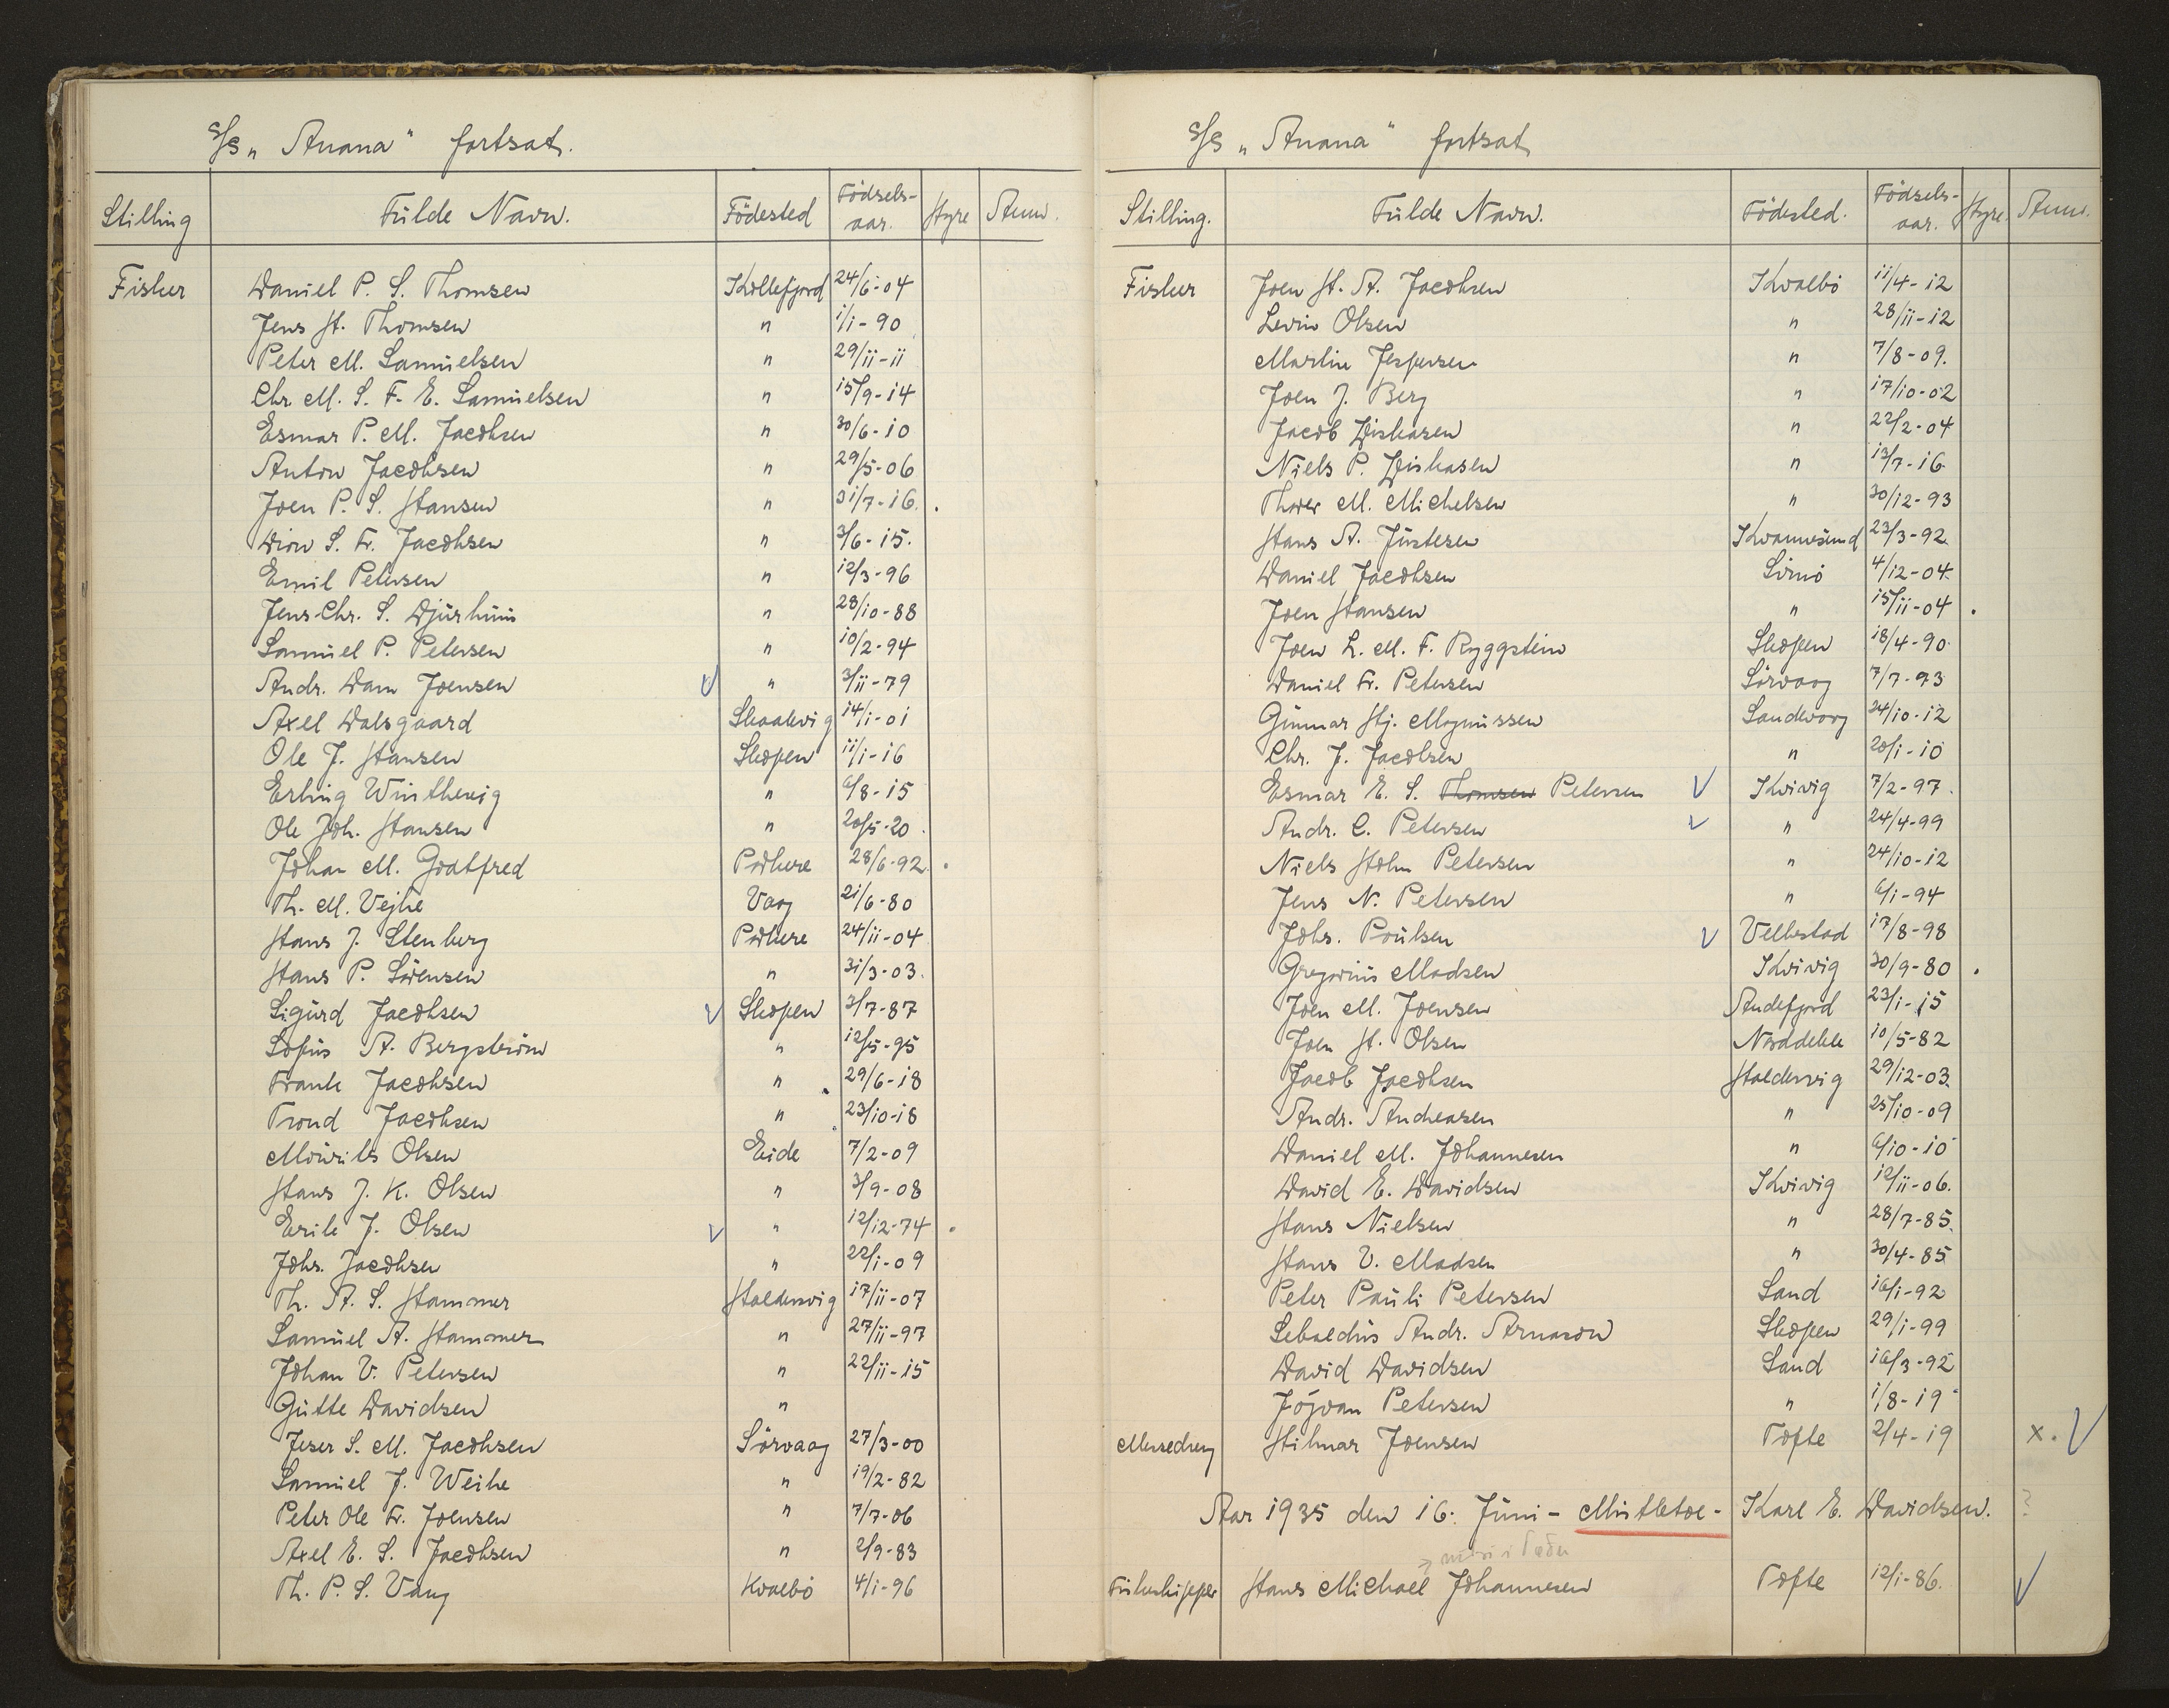 S/S „Anana“ fortsat.
Stilling Fulde Navn. Födested Födsels-aar. Hyre Anm.
Fisker Daniel P. S. Thomsen Kollefjord 24/6-04
Jens H. Thomsen " 1/1-90
Peter M. Samuelsen " 29/11-11
Chr. M. S. F. E. Samuelsen " 15/9-14
Esmar P. M. Jacobsen " 30/6-10
Anton Jacobsen " 29/5-06
Joen P. S. Hansen " 31/7-16.
Dion S. Fr. Jacobsen " 3/6-15.
Emil Petersen " 12/3-96
Jens Chr. S. Djurhuus " 28/10-88
Samuel P. Petersen " 10/2-94
Andr. Dam Joensen " 3/11-79
Axel Dalsgaard Skaalevig 14/1-01
Ole J. Hansen Skopen 11/1-16
Erling Wintherig " 6/8-15
Ole Joh. Hansen " 20/5-20.
Johan M. Godtfred Porkere 28/6-92.
Th. M. Vejhe Vaag 21/6-80
Hans J. Stenberg Porkere 24/11-04
Hans P. Sörensen " 31/3-03.
Sigurd Jacobsen Skopen 3/7-87
Sofus A. Bergström " 12/5-95
Frank Jacobsen " 29/6-18
Trond Jacobsen " 23/10-18
Mourits Olsen Eide 7/2-09
Hans J. K. Olsen " 3/9-08
Erik J. Olsen " 12/12-74
Johs. Jacobsen " 22/1-09
Th. A. S. Hammer Haldersvig 17/11-07
Samuel A. Hammer " 27/11-97
Johan V. Petersen " 22/11-15
Gutte Davidsen "
Jeser S. M. Jacobsen Sörvaag 27/3-00
Samuel J. Weihe " 19/2-82
Peter Ole Fr. Joensen " 7/7-06
Axel E. S. Jacobsen " 2/9-83
Th. P. S. Vang Kvalbö 4/1-96
S/S „Anana“ fortsat
Stilling. Fulde Navn. Födested. Födsels-aar. Hyre. Anm.
Fisker Joen H. A. Jacobsen Kvalbö 11/4-12
Levin Olsen " 28/11-12
Martin Jespersen " 7/8-09.
Joen J. Berg " 17/10-02
Jacob Diskasen " 22/2-04
Niels P. Diskasen " 13/7-16
Thorer M. Michelsen " 30/12-93
Hans A. Justesen Kvannesund 23/3-92.
Daniel Jacobsen Svinö 4/12-04.
Joen Hansen " 15/11-04
Joen L. M. F. Ryggstein Skopen 18/4-90
Daniel Fr. Petersen Sörvaag 7/7-93
Gunnar Hj. Magnussen Sandevaag 24/10-12
Chr. J. Jacobsen " 20/1-10
Esmar E. S. Thomsen Petersen Kvivig 7/2-97.
Andr. C. Petersen " 24/4-99
Niels Holm Petersen " 24/10-12
Jens N. Petersen " 6/1-94
Johs. Poulsen Velbestad 17/8-98
Gregorius Madsen Kvivig 30/9-80
Joen M. Joensen Andefjord 23/1-15
Joen H. Olsen Norddeble 10/5-82
Jacob Jacobsen Haldersvig 29/12-03.
Andr. Andreasen " 25/10-09
Daniel M. Johannesen " 6/10-10
David E. Davidsen Kvivig 12/11-06.
Hans Nielsen " 28/7-85.
Hans V. Madsen " 30/4-85
Peter Pauli Petersen Sand 16/1-92
Sebaldus Andr. Arnason Skopen 29/1-99
David Davidsen Sand 16/3-92
Jógvan Petersen " 1/8-19
Messedreng Hilmar Joensen Tofte 2/4-19 x.
Aar 1935 den 16. Juni - Mistletoe - Karl E. Davidsen. ?
Fiskeskipper Hans Michael Johannesen Tofte 12/1-86.